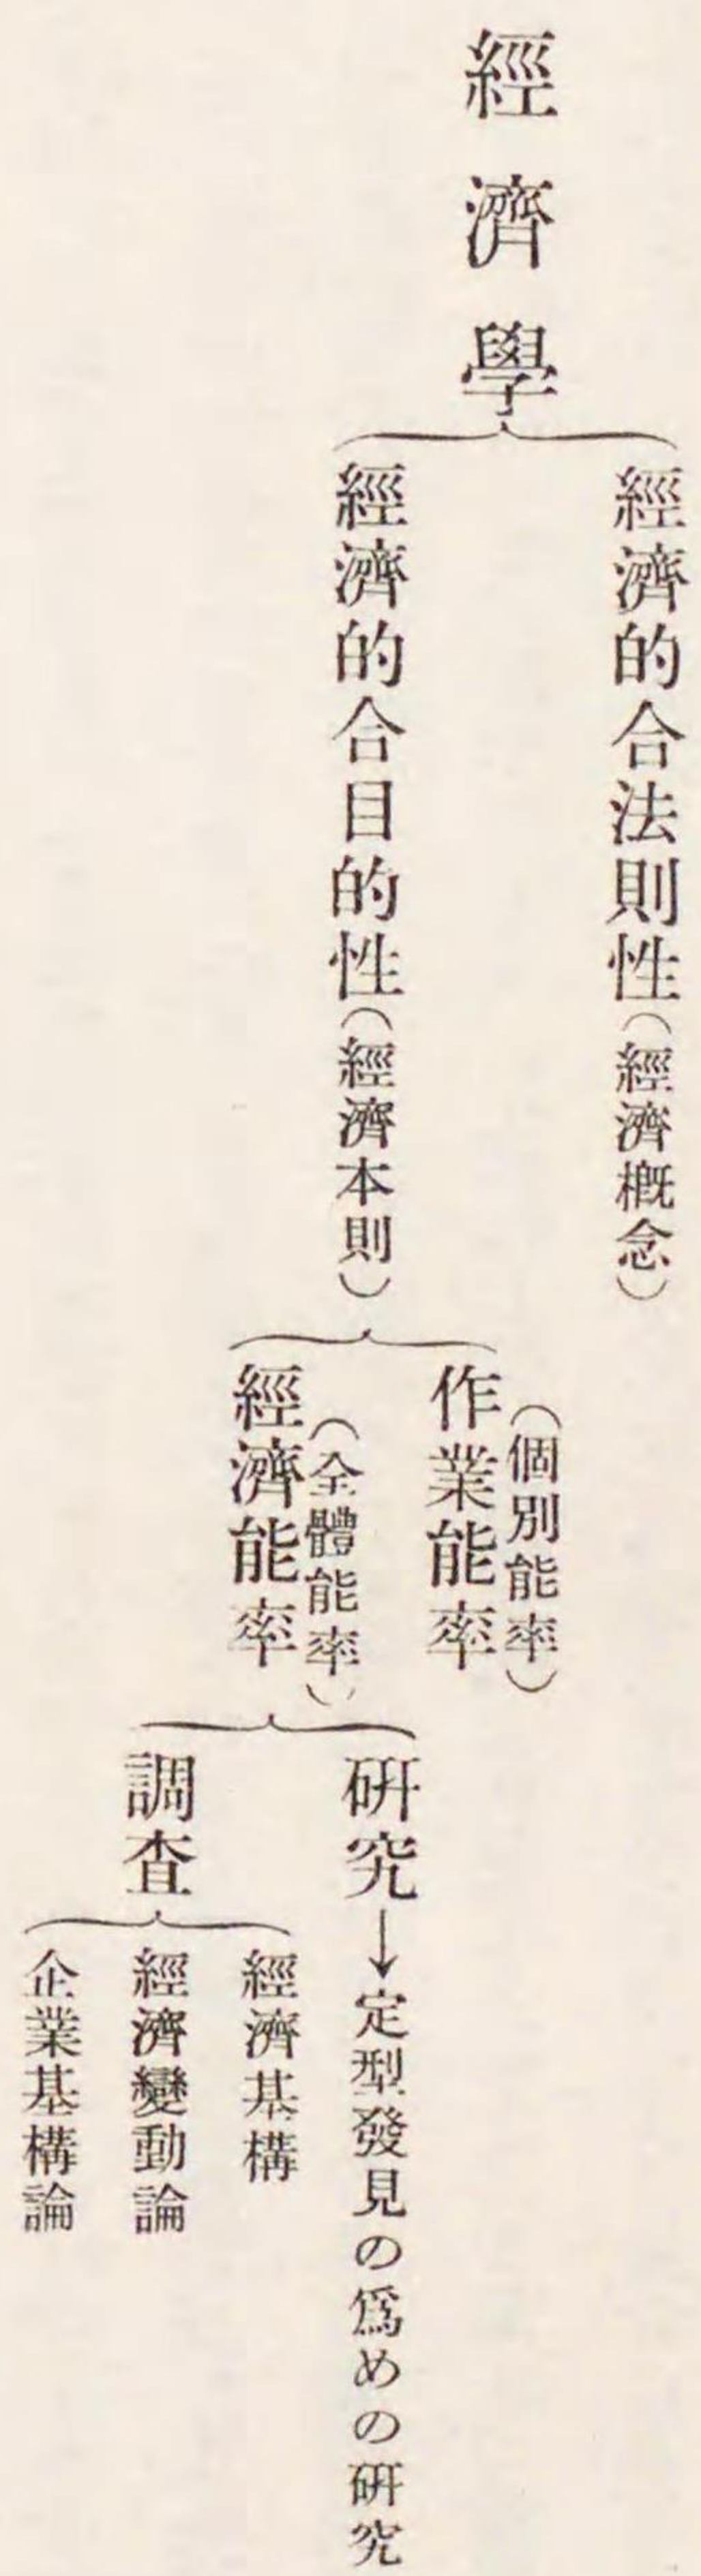 經濟學
經濟的合法則性（經濟概念）
經濟的合目的性（經濟本則）
（個別能率）
作業能率
（全體能率）
經濟能率
硏究→定型發見の爲めの硏究
調査
經濟基構
經濟變動論
企業基構論